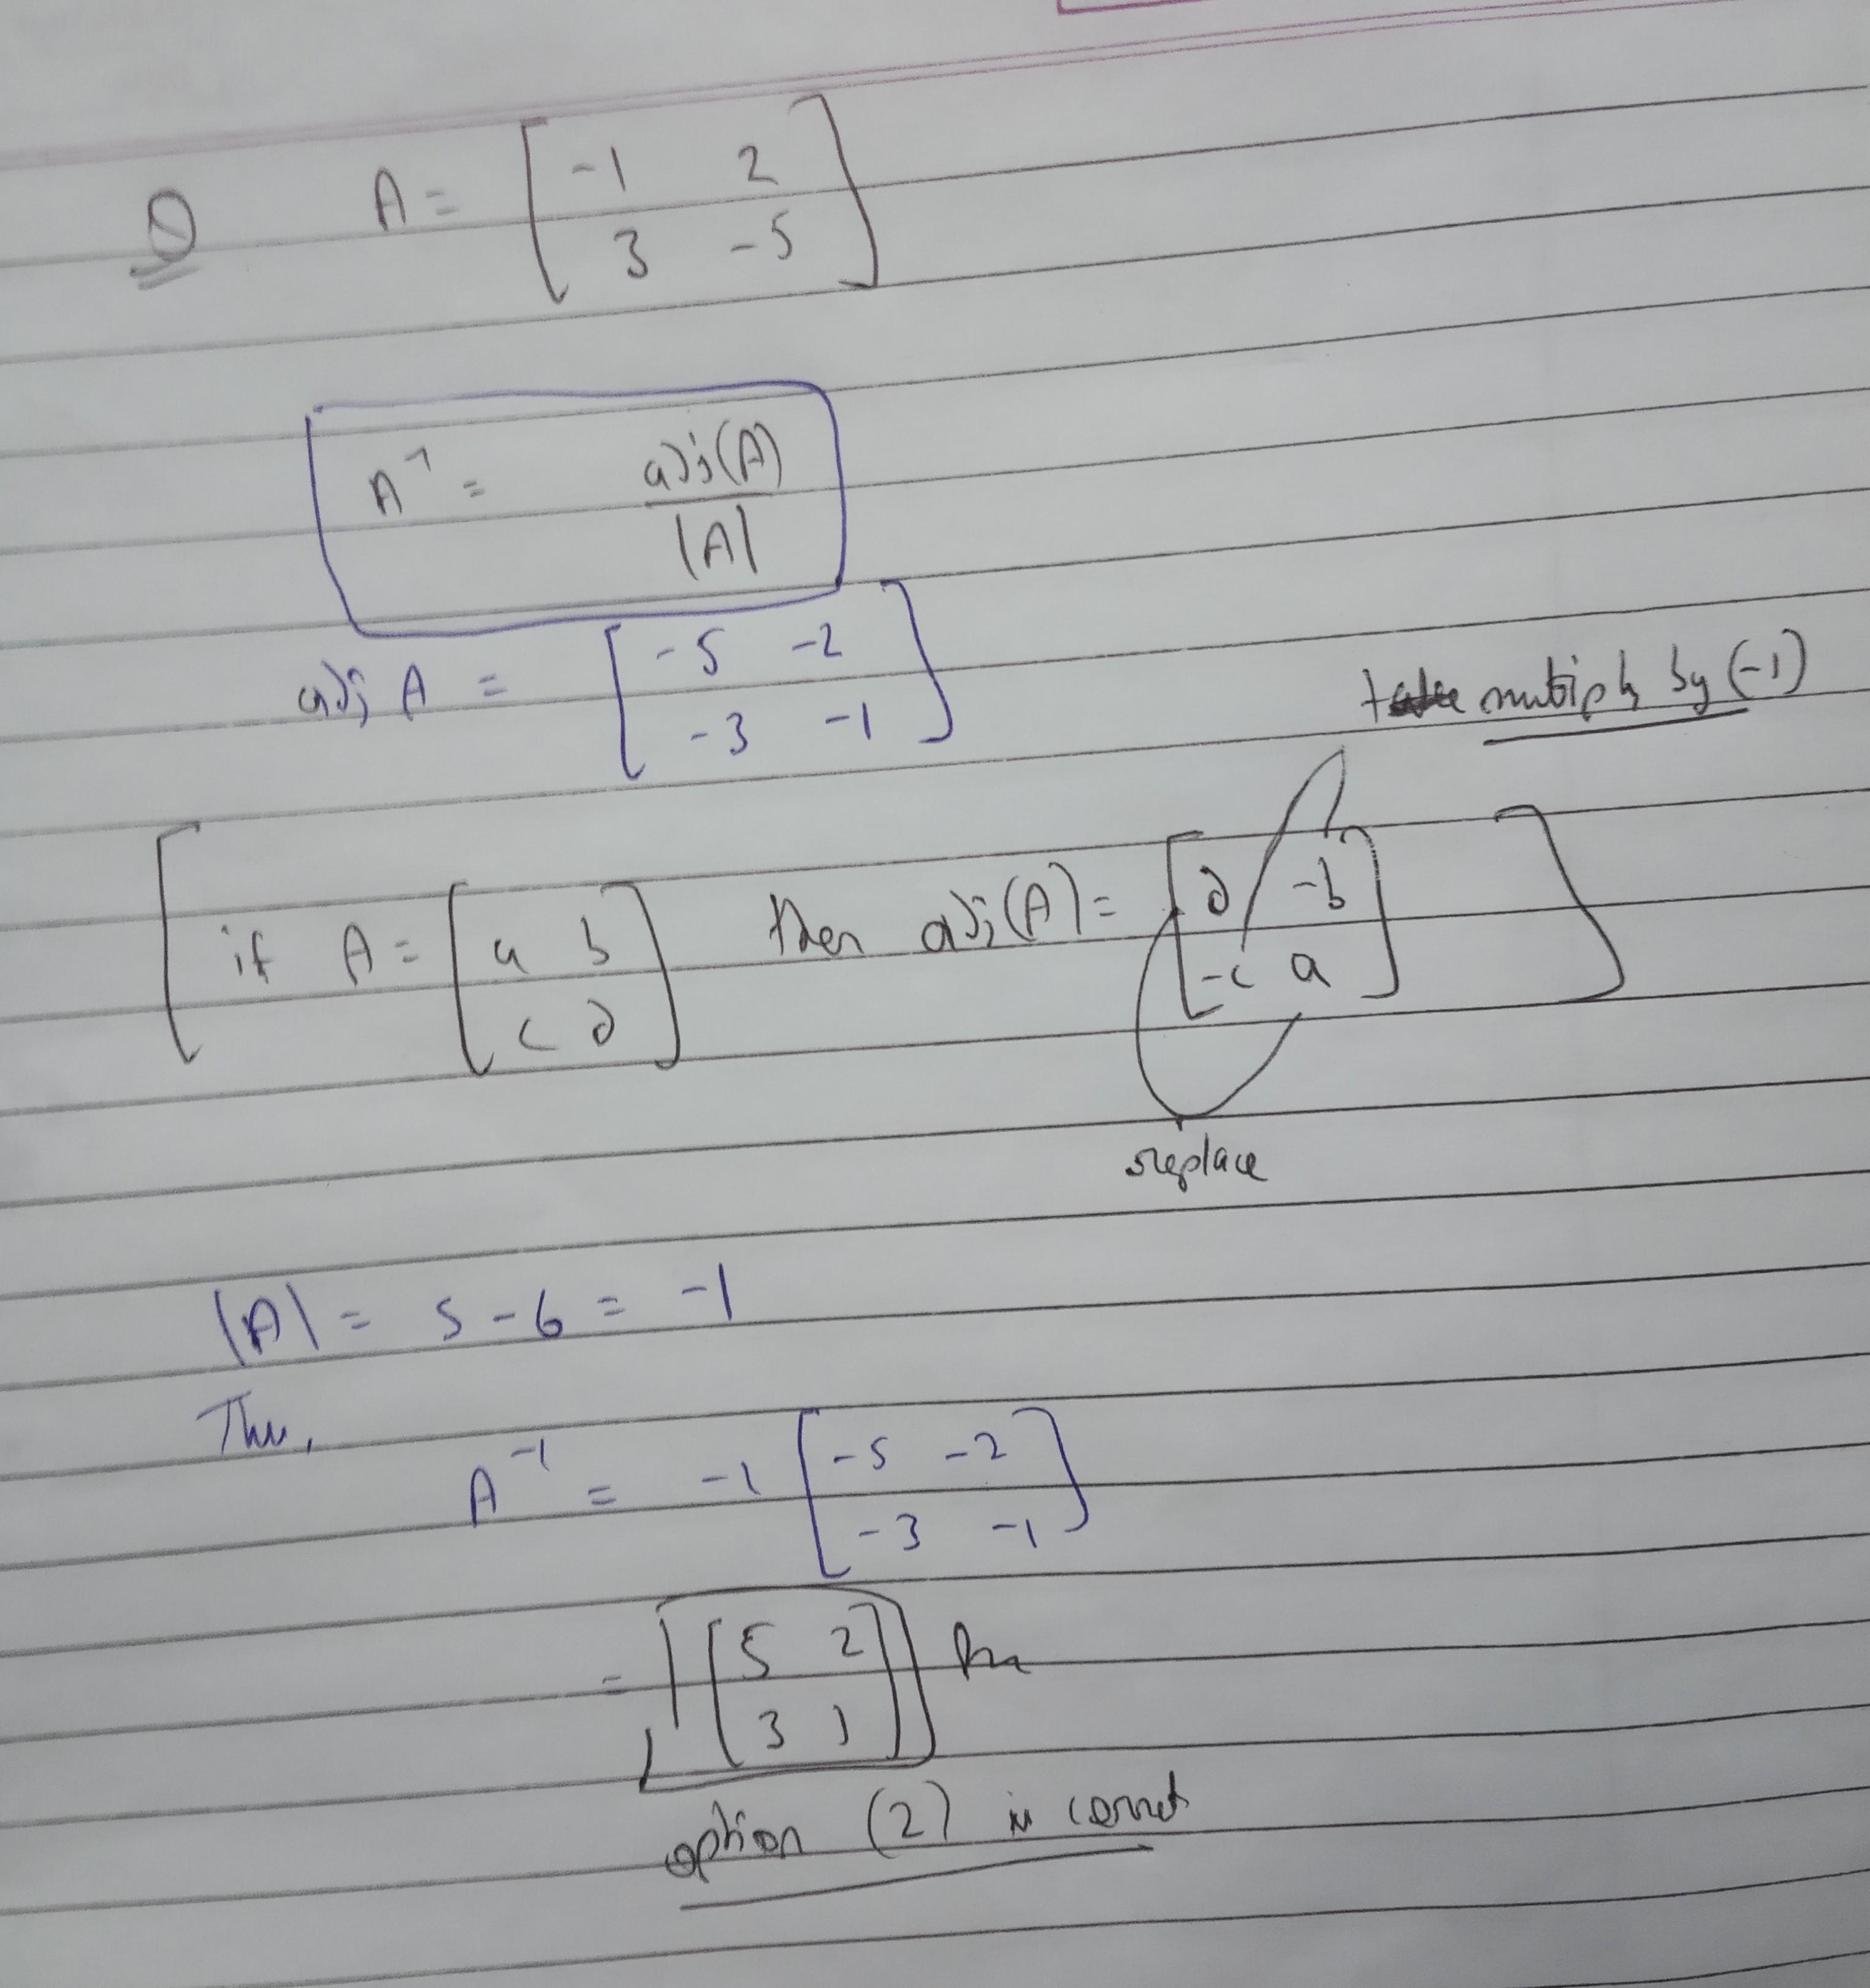 Q A = [ -1 2
3 -5 ]
A⁻¹ = adj(A)
|A|
adj A = [ -5 -2
-3 -1 ]
multiply by (-1)
if A = [ a b
c d ] then adj(A) = [ d -b
-c a ]
replace
|A| = 5 - 6 = -1
Thu,
A⁻¹ = -1 [ -5 -2
-3 -1 ]
= [ 5 2
3 1 ]
option (2) is correct